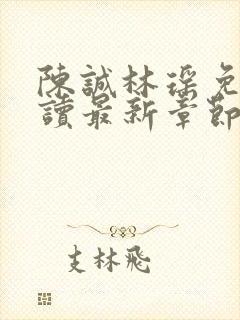 陳誠林瑤免
讀最新章節
支林飛